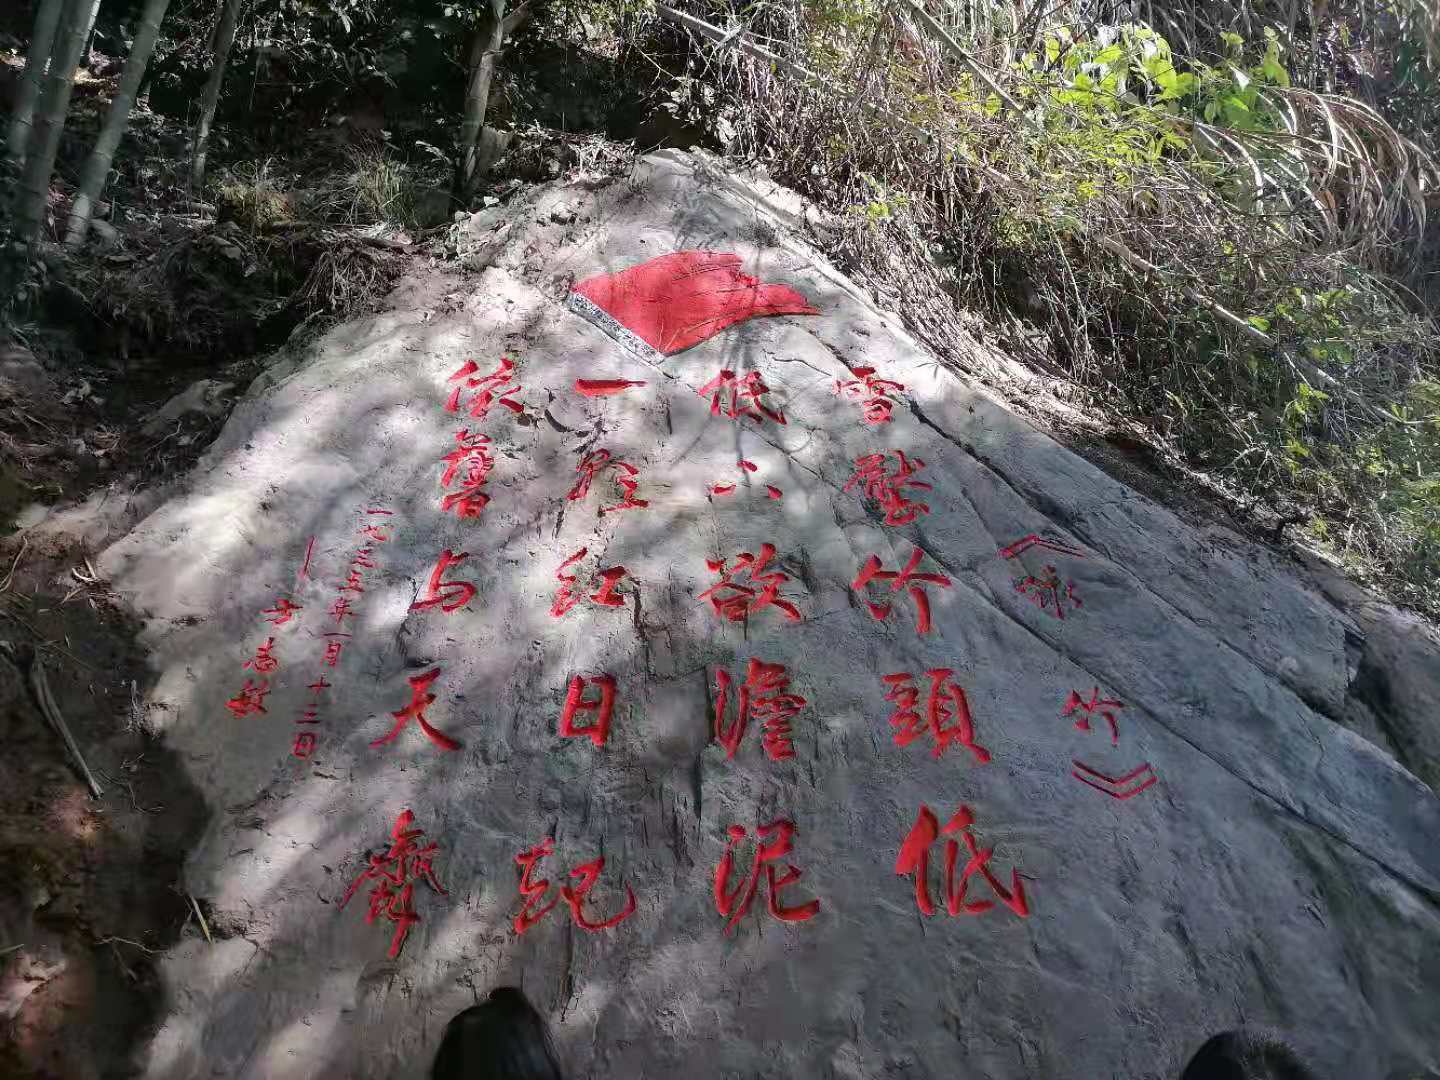 《咏竹》
雪壓竹頭低
低下欲澹泥
一轮红日起
依舊与天齊
一九三五年一月十三日
—方志敏